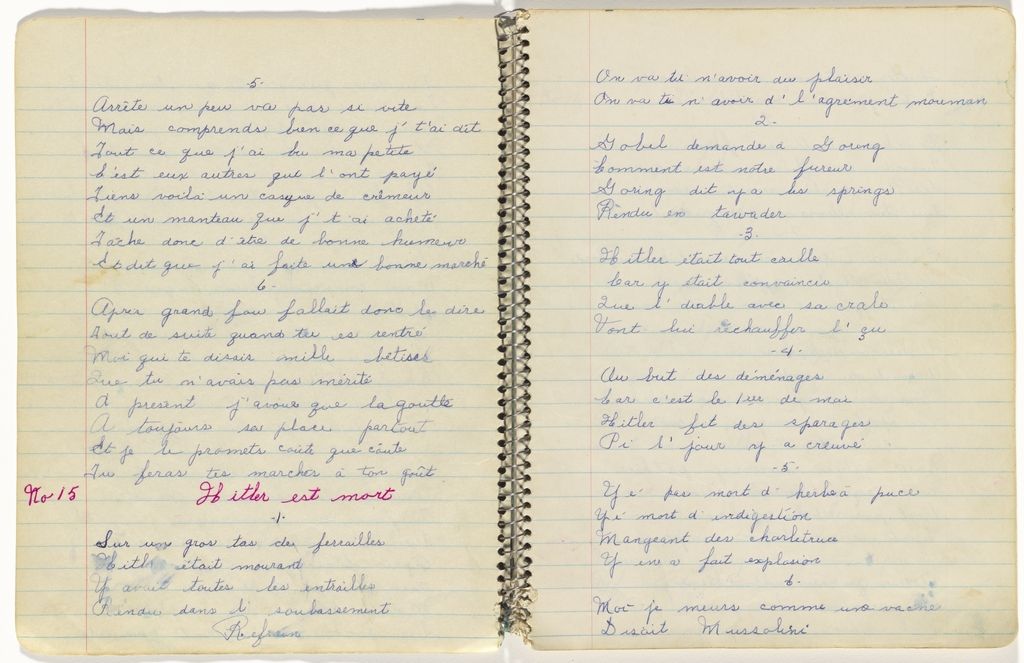 5.
Arrête un peu va pas si vite
Mais comprends bien ce que j't'ai dit
Tout ce que j'ai bu ma petite
C'est eux autres qui l'ont payé
Tiens voilà un casque de crêmeur
Et un manteau que j't'ai acheté
Tâche donc d'être de bonne humeur
Et dit que j'ai faite une bonne marché
6.
Apres grand fou fallait donc le dire
Tout de suite quand tu es rentré
Moi qui te disais mille bêtises
Que tu n'avais pas mérité
A present j'avoue que la goutte
A toujours sa place partout
Et je te promets coûte que coûte
Tu feras tes marches à ton goût
No 15 Hitler est mort
-1-
Sur un gros tas des ferrailles
Hitler était mourant
Y avait toutes les entrailles
Rendu dans l'soubassement
Refrain
On va tu n'avoir du plaisir
On va tu n'avoir d'l'agrement mouman
2.
Gobel demande à Goring
Comment est notre fureur
Goring dit y a les springs
Rendu en tawader
-3.
Hitler était tout caille
Car y était convaincu
Que l'diable avec sa crale
Vont lui réchauffer l'çu
-4.
Au but des déménages
Car c'est le 1ier de mai
Hitler fit des sparages
Pi l'jour y a creuvé
-5-
Y é pas mort d'herbe à puce
Y é mort d'indigestion
Mangeant des charletruce
Y en a fait explosion
6.
Moé je meurs comme une vache
Disait Mussolini